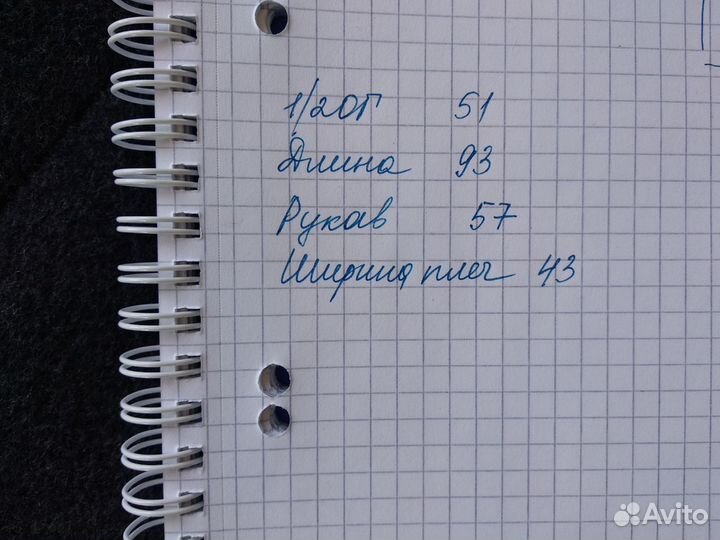 1/2 ОГ 51
Длина 93
Рукав 57
Ширина плеч 43
Avito